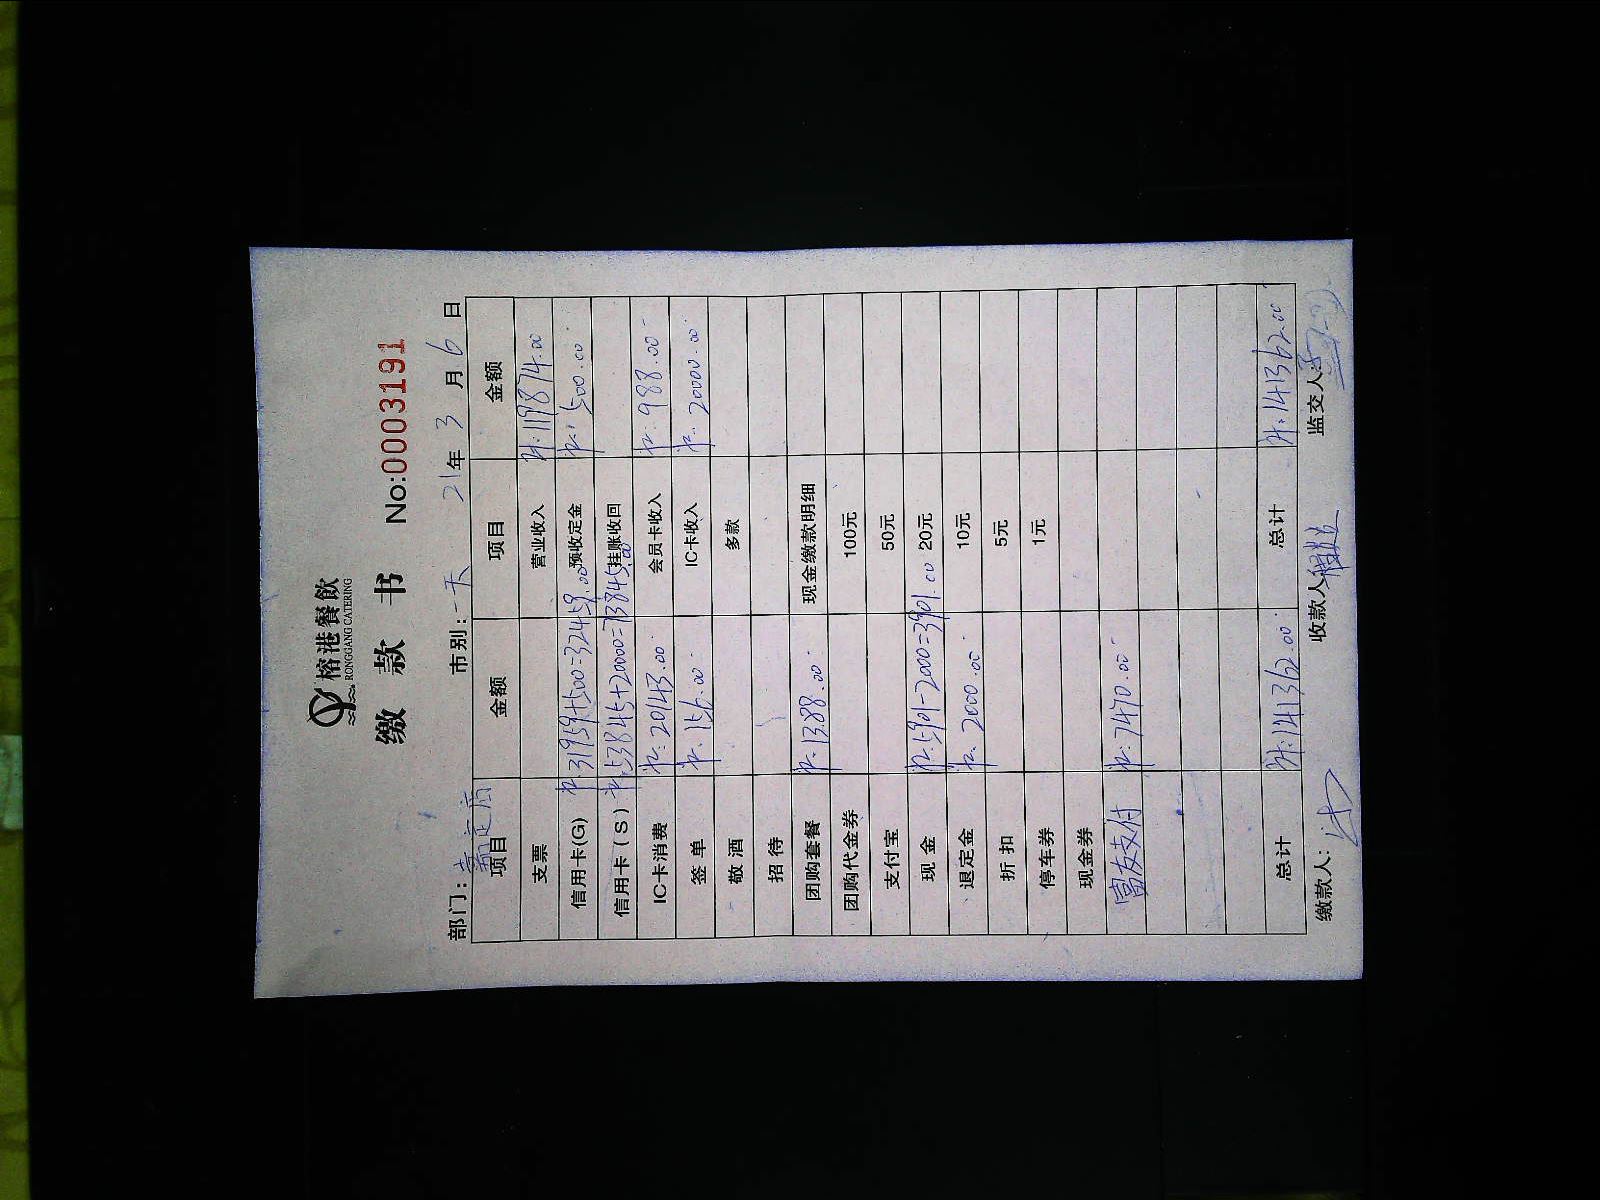 榕港餐飲
RONGGANG CATERING
缴 款 书 No:0003191
部门: 嘉定店 市别: 一天 21年 3月 6日
项目 金额 项目 金额
支票 营业收入 ¥:119874.00
信用卡(G) ¥.31959+500=32459.00 预收定金 ¥: 500.00
信用卡(S) ¥.53845+20000=73845.00 挂账收回
IC卡消费 ¥: 20143.00 会员卡收入 ¥: 988.00
签单 ¥. 156.00 IC卡收入 ¥: 20000.00
敬酒 多款
招待
团购套餐 ¥.1388.00 现金缴款明细
团购代金券 100元
支付宝 50元
现金 ¥.5901-2000=3901.00 20元
退定金 ¥. 2000.00 10元
折扣 5元
停车券 1元
现金券
富友支付 ¥: 7470.00
总计 ¥:141362.00 总计 ¥:141362.00
缴款人: 收款人 监交人: